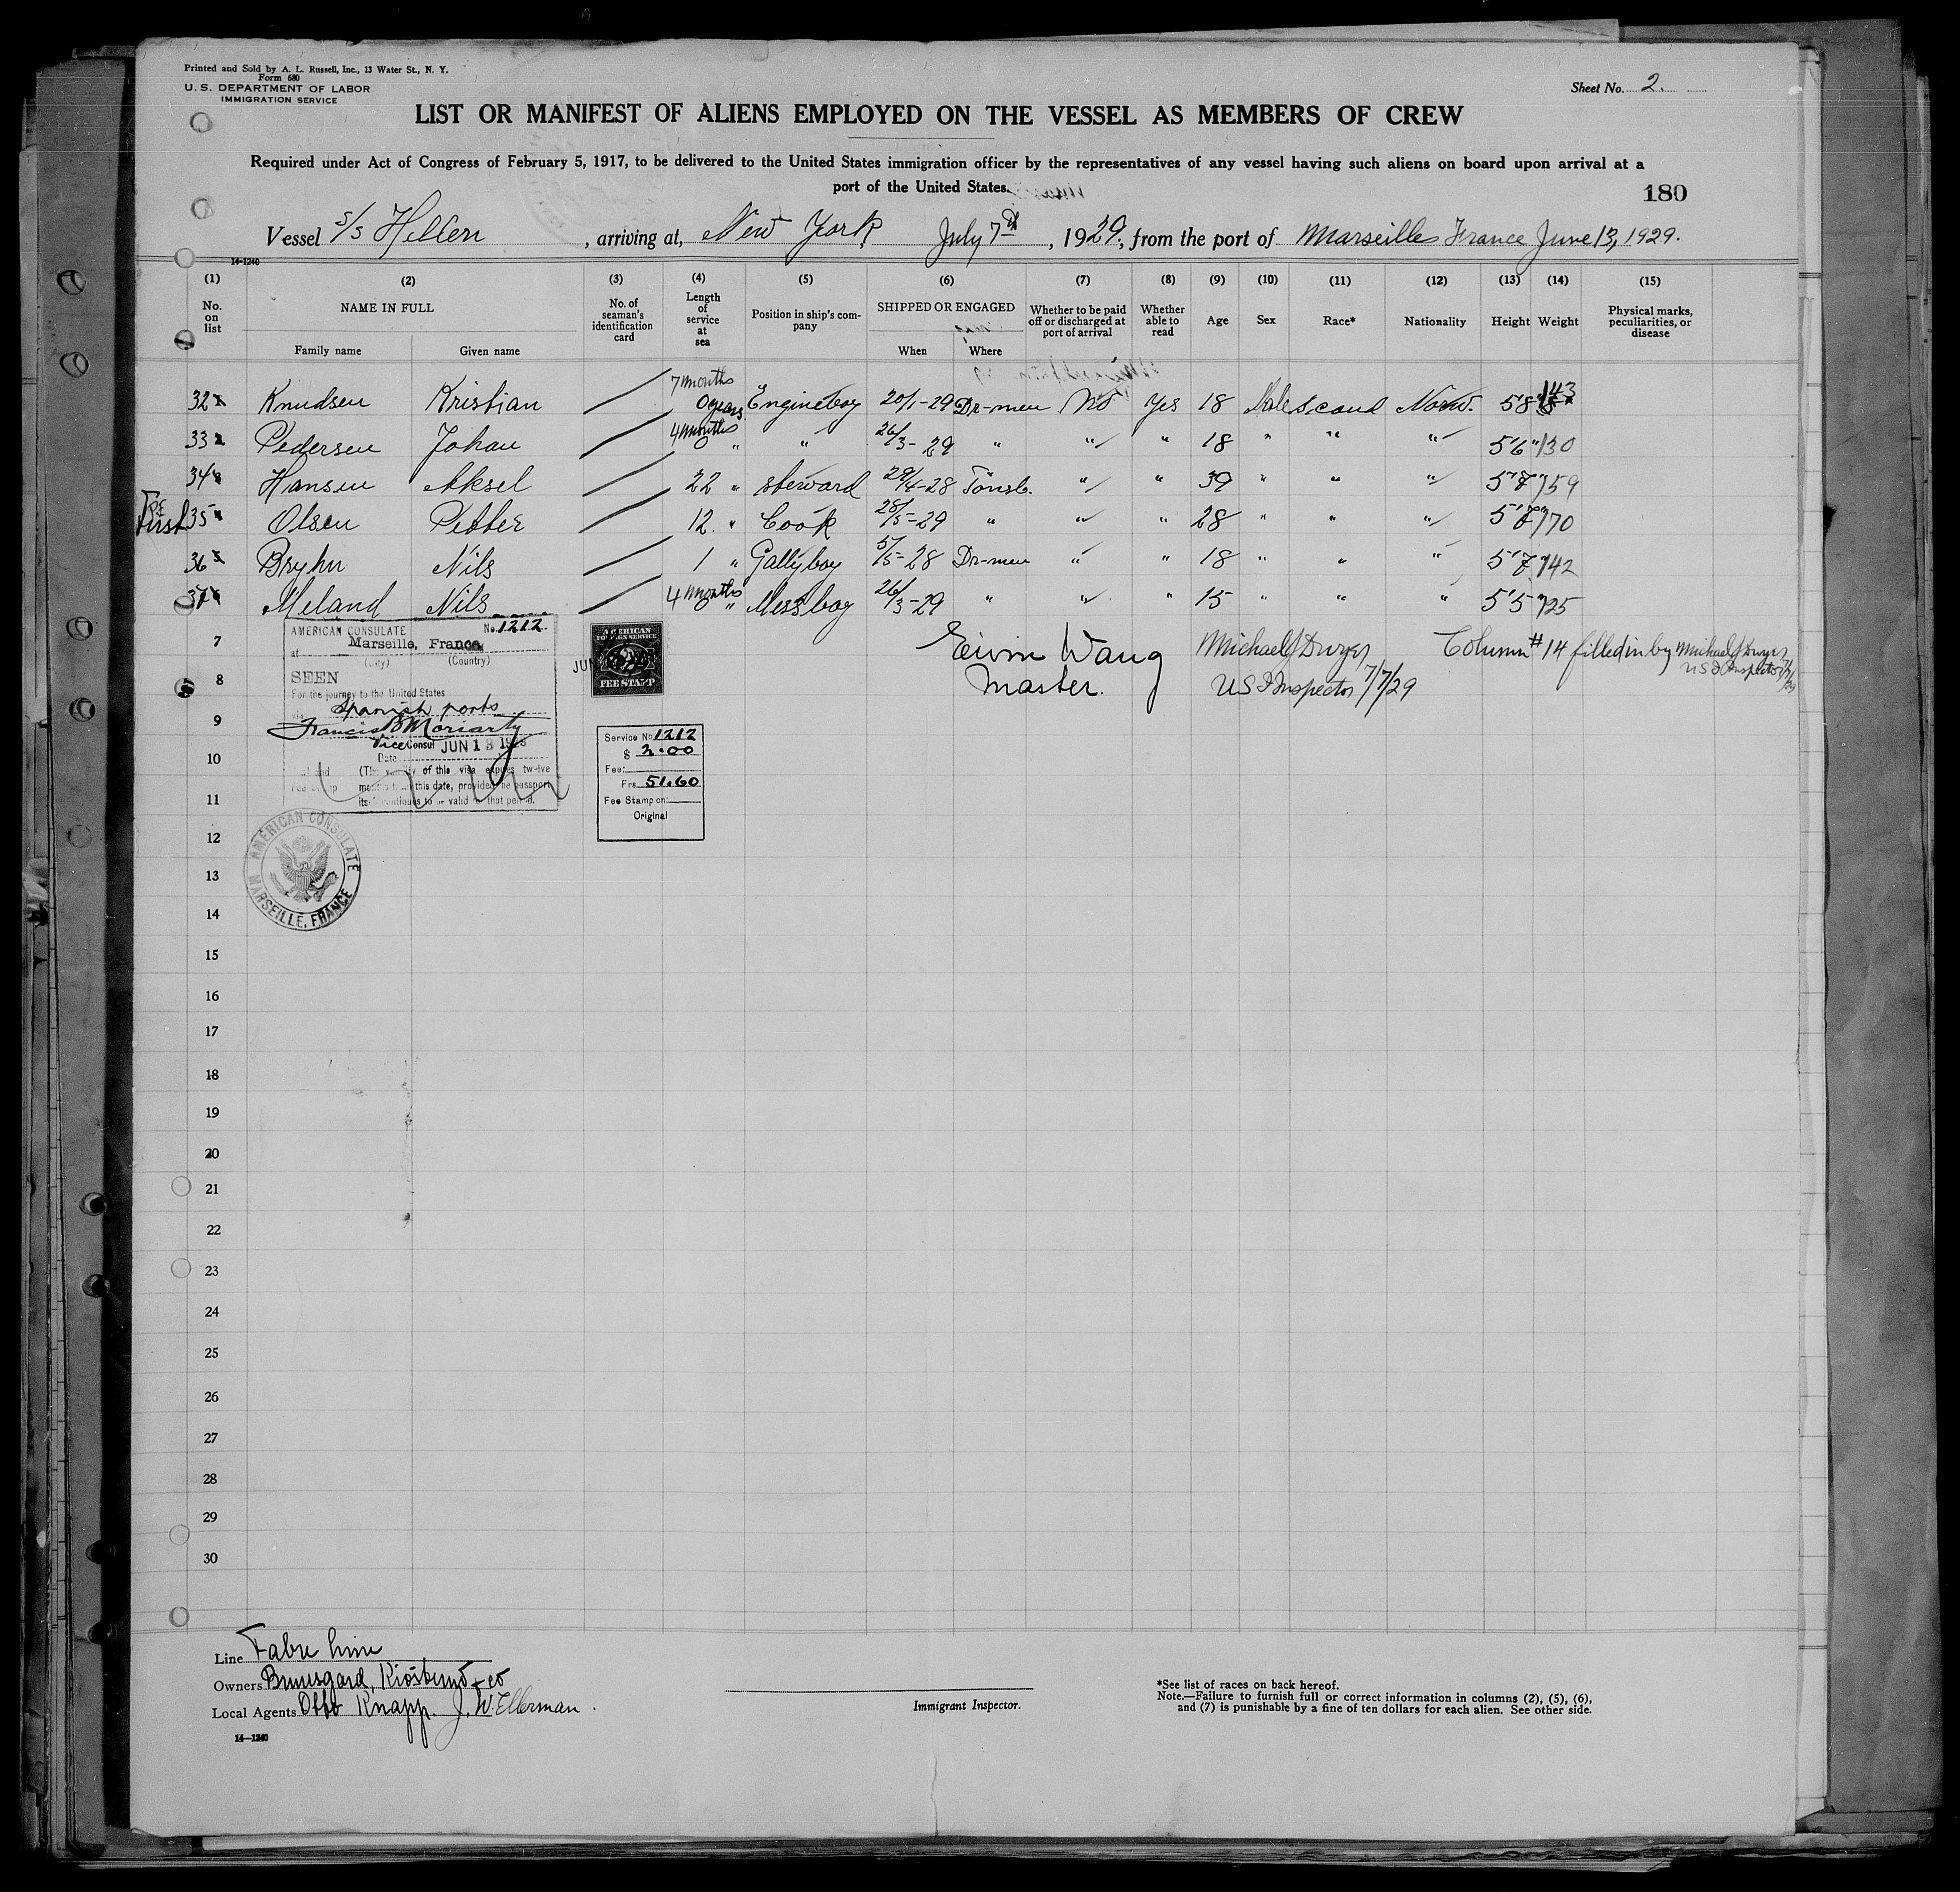 Printed and Sold by A. L. Russell, Inc., 13 Water St., N. Y.
Form 680
U. S. DEPARTMENT OF LABOR
IMMIGRATION SERVICE
Sheet No. 2.
LIST OR MANIFEST OF ALIENS EMPLOYED ON THE VESSEL AS MEMBERS OF CREW
Required under Act of Congress of February 5, 1917, to be delivered to the United States immigration officer by the representatives of any vessel having such aliens on board upon arrival at a
port of the United States.
180
Vessel S/S Hellen, arriving at, New York, July 7th, 1929, from the port of Marseille France June 13, 1929.
14-1240
(1) (2) (3) (4) (5) (6) (7) (8) (9) (10) (11) (12) (13) (14) (15)
No. on list NAME IN FULL Family name Given name No. of seaman's identification card Length of service at sea Position in ship's company SHIPPED OR ENGAGED When Where Whether to be paid off or discharged at port of arrival Whether able to read Age Sex Race* Nationality Height Weight Physical marks, peculiarities, or disease
32 Knudsen Kristian 7 months 0 years Engineboy 20/1-29 Dr-men No Yes 18 Male Scand Norw. 5 8 143
33 Pedersen Johan 4 months 0 " " 26/3-29 " " " 18 " " " 5'6" 130
34 Hansen Aksel 22 " Steward 29/4-28 Tönsb. " " 39 " " " 5'7" 159
35 Olsen Petter 12 " Cook 28/5-29 " " " 28 " " " 170
First
36 Bryhn Nils 1 " Gallyboy 5/5-28 Dr-men " " 18 " " " 5'7" 142
37 Meland Nils 4 months 0 " Messboy 26/3-29 " " " 15 " " " 5'5" 125
7
8
9
10
11
12
13
14
15
16
17
18
19
20
21
22
23
24
25
26
27
28
29
30
AMERICAN CONSULATE No. 1212.
at Marseille, France
(City) (Country)
SEEN
For the journey to the United States
via Spanish ports
Francis B Moriarty
Vice Consul JUN 13
Date
(The validity of this visa expires twelve
months from this date, provided the passport
itself continues to be valid for that period.
AMERICAN CONSULATE
MARSEILLE, FRANCE
AMERICAN
FOREIGN SERVICE
FEE STAMP
JUN
Service No 1212
$ 2.00
Fee:
Frs 51.60
Fee Stamp on:
Original
Eivin Wang
Master.
Michael J Dwyer
US I Inspector 7/7/29
Column #14 filled in by Michael J Dwyer
US I Inspector 7/7/29
Line Fabre Line
Owners Bruusgard, Kiösterud & Co
Local Agents Otto Knapp. J. W. Ellerman.
14—1240
Immigrant Inspector.
*See list of races on back hereof.
Note.—Failure to furnish full or correct information in columns (2), (5), (6),
and (7) is punishable by a fine of ten dollars for each alien. See other side.